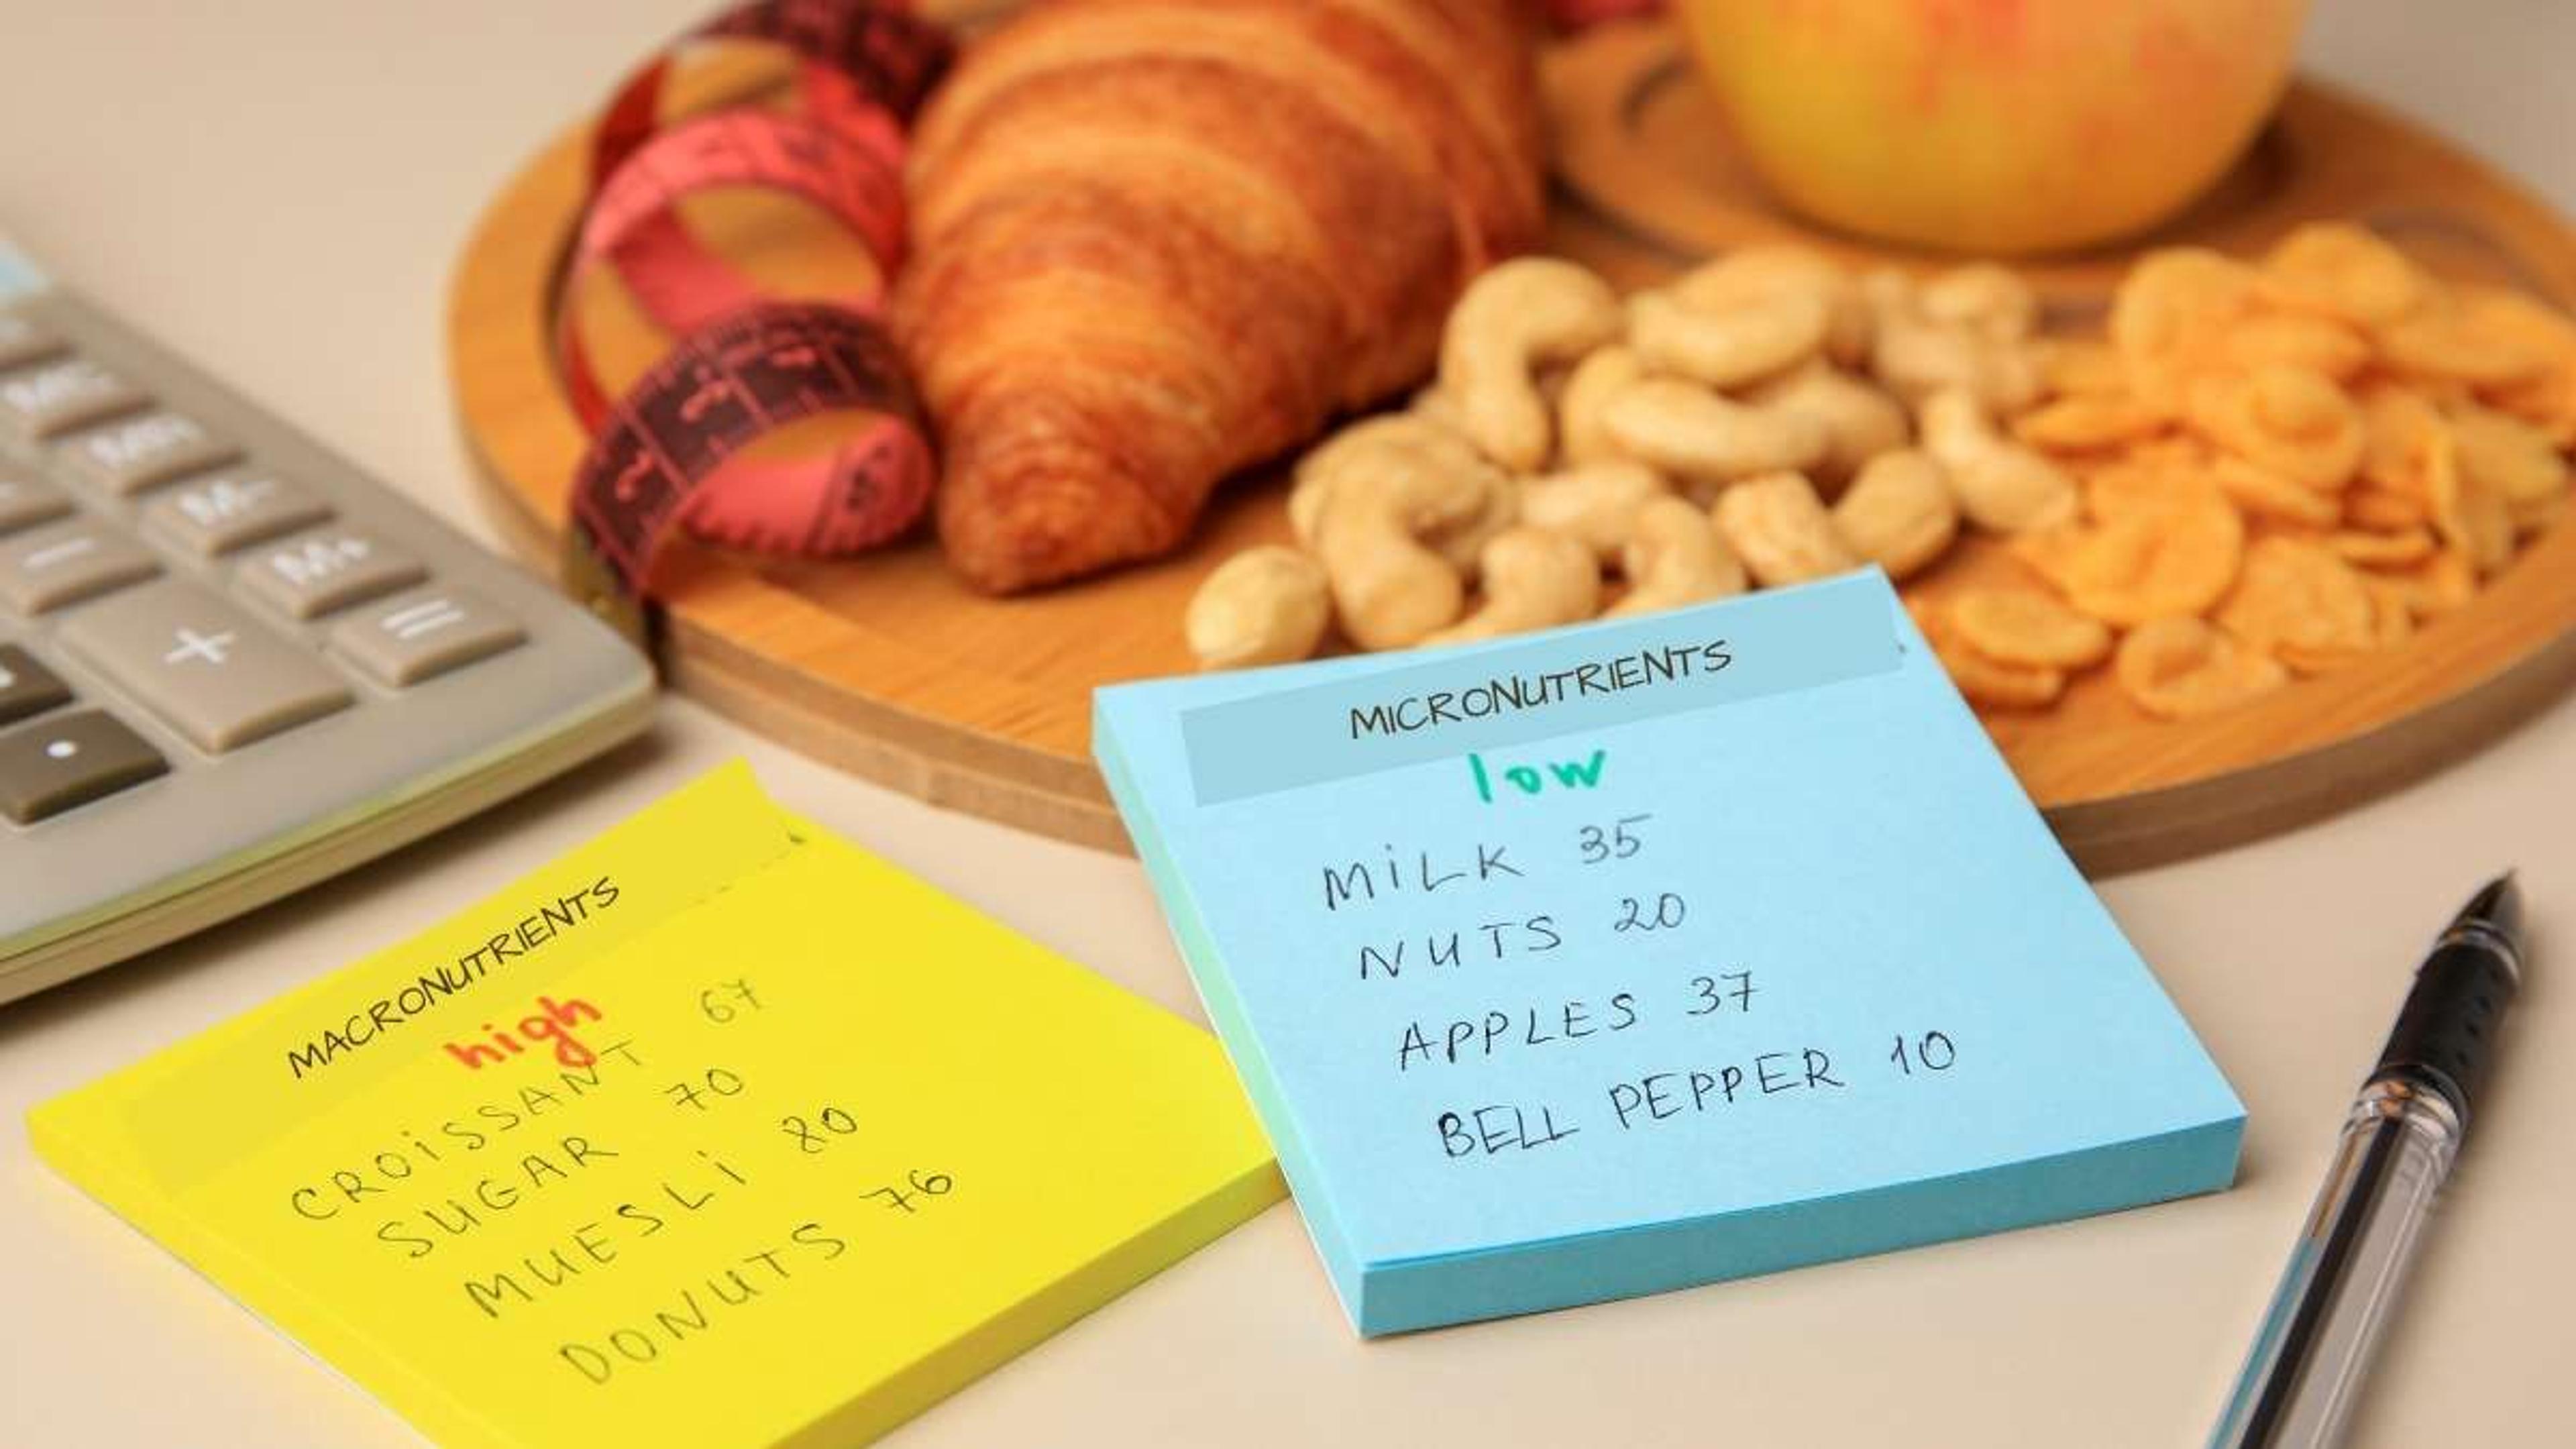 MC
MR
M-
M+
-
+
=
.
MACRONUTRIENTS
high
CROiSSANT 67
SUGAR 70
MUESLi 80
DONUTS 76
MICRONUTRIENTS
low
MiLK 35
NUTS 20
APPLES 37
BELL PEPPER 10